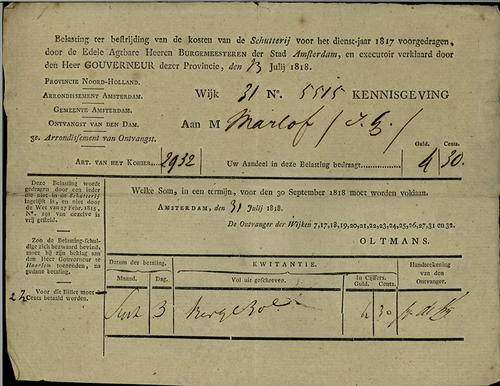 Belasting ter bestrijding van de kosten van de Schutterij voor het dienst-jaar 1817 voorgedragen,
door de Edele Agtbare Heeren BURGEMEESTEREN der Stad Amsterdam, en executoir verklaard door
den Heer GOUVERNEUR dezer Provincie, den 13 Julij 1818.
PROVINCIE NOORD-HOLLAND.
ARRONDISSEMENT AMSTERDAM.
GEMEENTE AMSTERDAM.
ONTVANGST VAN DEN DAM.
3e. Arrondissement van Ontvangst.
WIJK 31 No. 5515 KENNISGEVING
AAN M Marlof
ART. VAN HET KOHIER 2932
Uw Aandeel in deze Belasting bedraagt
Guld. Cents.
4 30.
Deze Belasting wordt
gedragen door een ieder
die niet in de Schutterij
ingelijfd is, en niet door
de Wet van 27 Febr. 1815,
No. 191 van dezelve is
vrij gesteld.
Zoo de Belasting-Schul-
dige zich bezwaard bevind,
moet hij zijn beklag aan
den Heer Gouverneur te
Haarlem toezenden, na
gedane betaling.
Voor dit Billet moet
2½ Cents betaald worden.
Welke Som, in een termijn, voor den 30 September 1818 moet worden voldaan.
AMSTERDAM, den 31 Julij 1818.
De Ontvanger der Wijken 7,17,18,19,20,21,22,23,24,25,26,27,31 en 32.
OLTMANS.
Datum der betaling.
Maand. Dag.
KWITANTIE.
Vol uit geschreven.
In Cijffers.
Guld. Cents.
Handteekening
van den
Ontvanger.
3 4 30